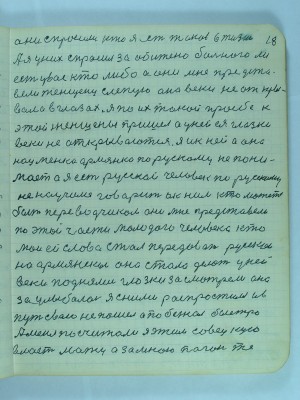 они спросили кто я ест таков в тизни 18
А я у них спросил за обижено больного ли
есть у вас кто либо а они мне предста
вели женщену слепую она веки не откры
вала в глазах. я по их такой просьбе к
этой женщены пришел а у ней в глазки
веки не открываются. я и к ней а она
коумен армянка по русскому не пони-
мает а я ест русский человек по русскому
не научился говарит ак ним кто может
быт переводчиком они мне представели
по этой части молодого человека кто
мои ей слова стал передоват русского
на армянский она стала делат у ней
веки подняли глозки засмотрели она
заулыбалас я с ними распростился и в
пут свой не пошел а побежал быстро
Амен посчитали я жил советскую
власт мать а за мною погон те